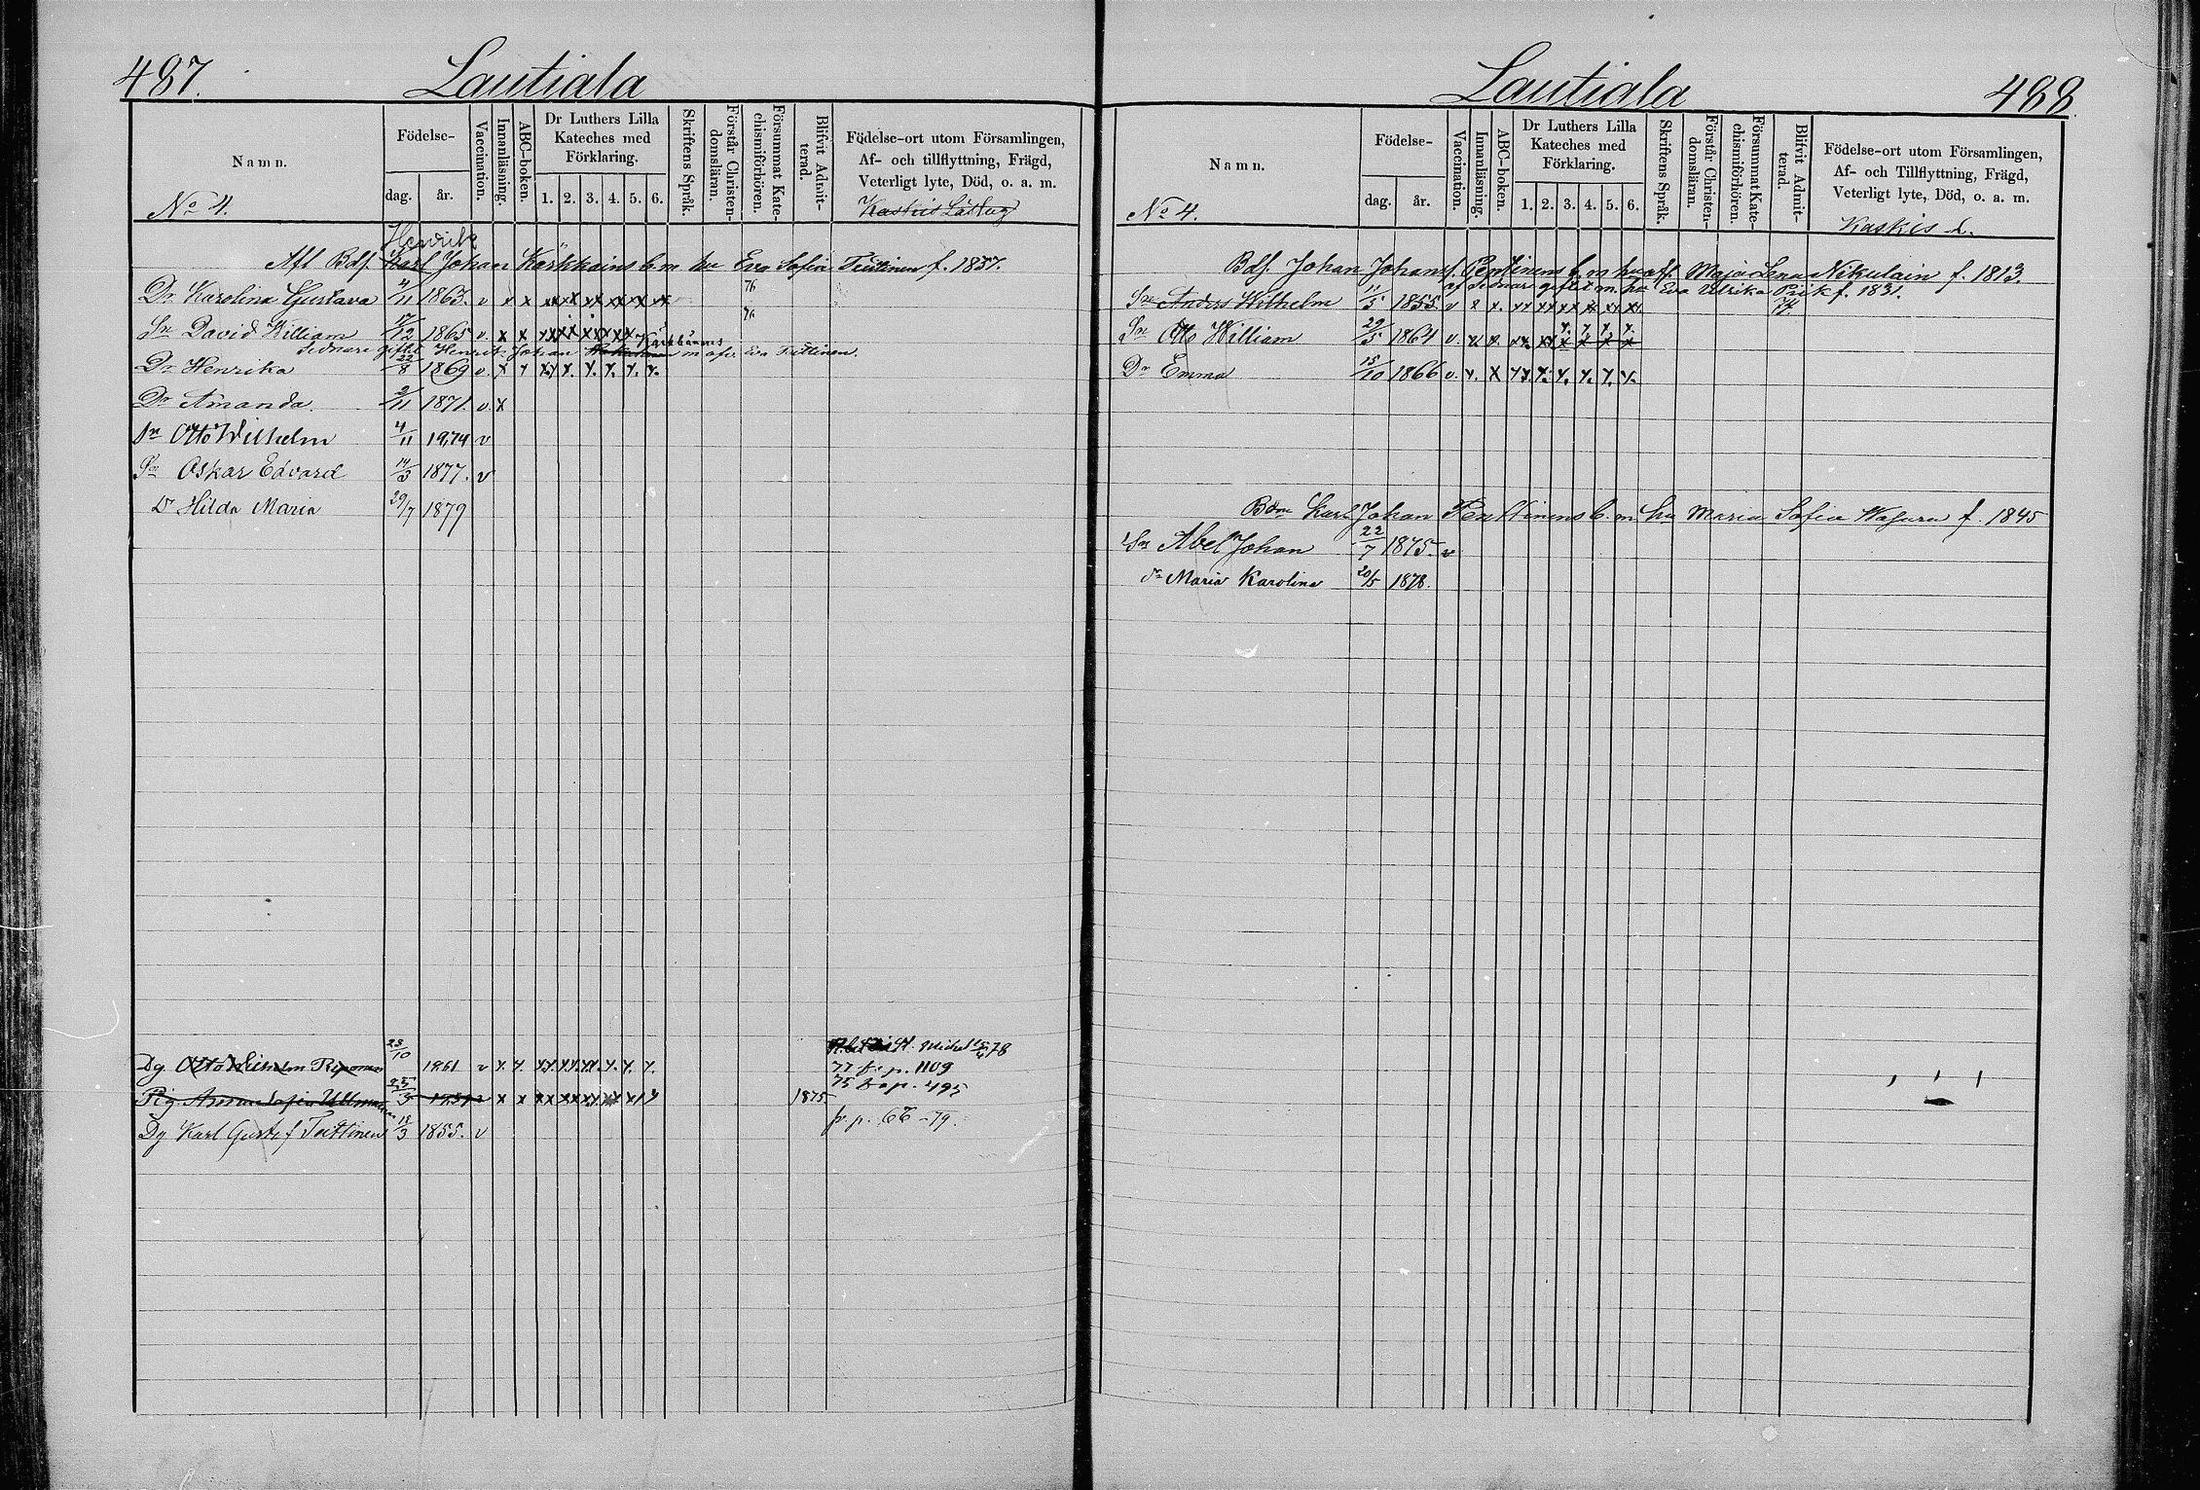 487.
Lautiala
Namn.
Födelse-
dag.
år.
Vaccination.
Innanläsning.
ABC-boken.
Dr Luthers Lilla
Kateches med
Förklaring.
1. 2. 3. 4. 5. 6.
Skriftens Språk.
Förstår Christen-
domsläran.
Försummat Kate-
chismiförhören.
Blifvit Admit-
terad.
Födelse-ort utom Församlingen,
Af- och tillflyttning, Frägd,
Veterligt lyte, Död, o. a. m.
No 4.
Kaskis
Henrik
Afl Bdf. Karl Johan Kärkkäins b. m hu Eva Sofia Tiittinen f. 1837.
76
Dr. Karolina Gustava 4/11 1863. v x x
76
Sn David William 17/12 1865 v. x x
Kärkkäinens
Sednare gift Henrik Johan m afs. Eva Tiittinen.
Dr Henrika 22/8 1869 v. x
Dr Amanda. 2/11 1871. v. x
Sn Otto Wilhelm 4/11 1874 v
Sn Oskar Edvard 14/3 1877. v
Dr Hilda Maria 29/7 1879
St. Michel 78
Dg Otto Wilhelm Reponen 23/10 1861 v
77 fr p. 1109
75 fr p. 495
Pig Anna Sofia Ullmanen 25/3 x x 1875
Dg Karl Gustaf Tiittinen 18/3 1855. v fr p. 66 - 79.
Lautiala
488.
Namn.
Födelse-
dag.
år.
Vaccination.
Innanläsning.
ABC-boken.
Dr Luthers Lilla
Kateches med
Förklaring.
1. 2. 3. 4. 5. 6.
Skriftens Språk.
Förstår Christen-
domsläran.
Försummat Kate-
chismiförhören.
Blifvit Admit-
terad.
Födelse-ort utom Församlingen,
Af- och Tillflyttning, Frägd,
Veterligt lyte, Död, o. a. m.
No 4.
Kaskis l.
Bdf. Johan Johansf. Penttinens b. m hu afs. Maja Lena Nikulain f. 1813.
af Sednare gift m. hu Eva Ulrika Piik f. 1831.
Sn Anders Wilhelm 11/5 1855 v x x.
Sn Otto William 29/5 1864 v.
Dr Emma 15/10 1866 v.
Bdn Karl Johan Penttinens b. m hu Maria Sofia f. 1845
Sn Abel Johan 22/7 1875. v
Dr Maria Karolina 20/5 1878.